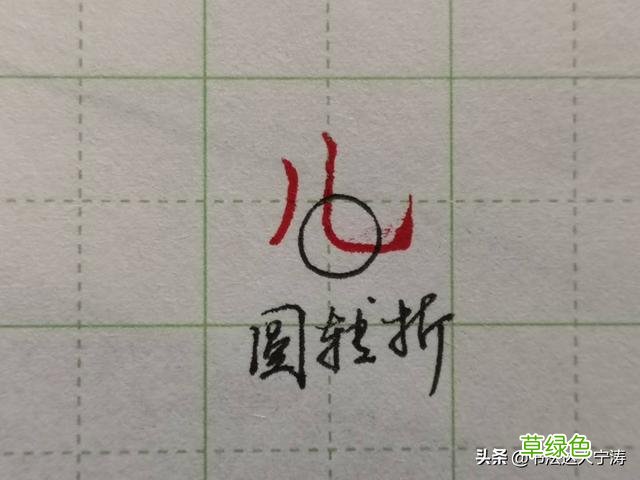 儿
圆转折
草绿色
头条@书法达人宁涛